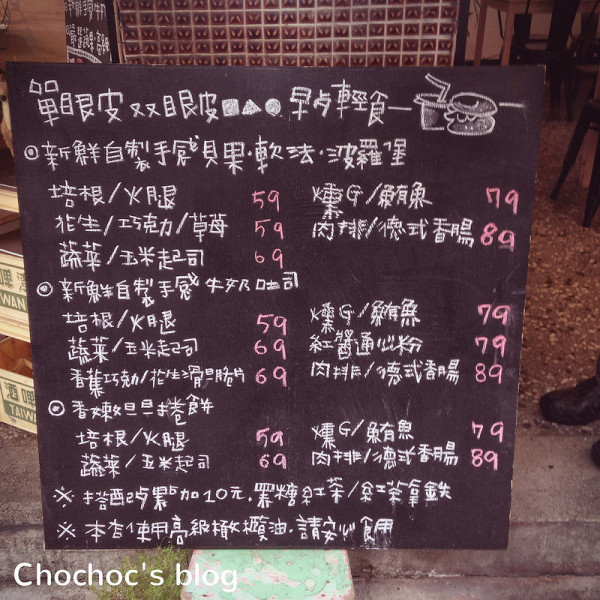 單眼皮双双眼皮■▲● 早点輕食
◎新鮮自製手感貝果·軟法·波羅堡
培根/火腿 59 燻G/鮪魚 79
花生/巧克力/草莓 59 肉排/德式香腸 89
蔬菜/玉米起司 69
◎新鮮自製手感牛奶吐司
培根/火腿 59 燻G/鮪魚 79
蔬菜/玉米起司 69 紅醬通心粉 79
香蕉巧克/花生 69 肉排/德式香腸 89
◎香嫩旦旦捲餅
培根/火腿 59 燻G/鮪魚 79
蔬菜/玉米起司 69 肉排/德式香腸 89
※搭配点點加10元.黑糖紅茶/紅茶拿鉄
※本店使用高級橄欖油.請安心食用
TAIWAN
Chochoc's blog